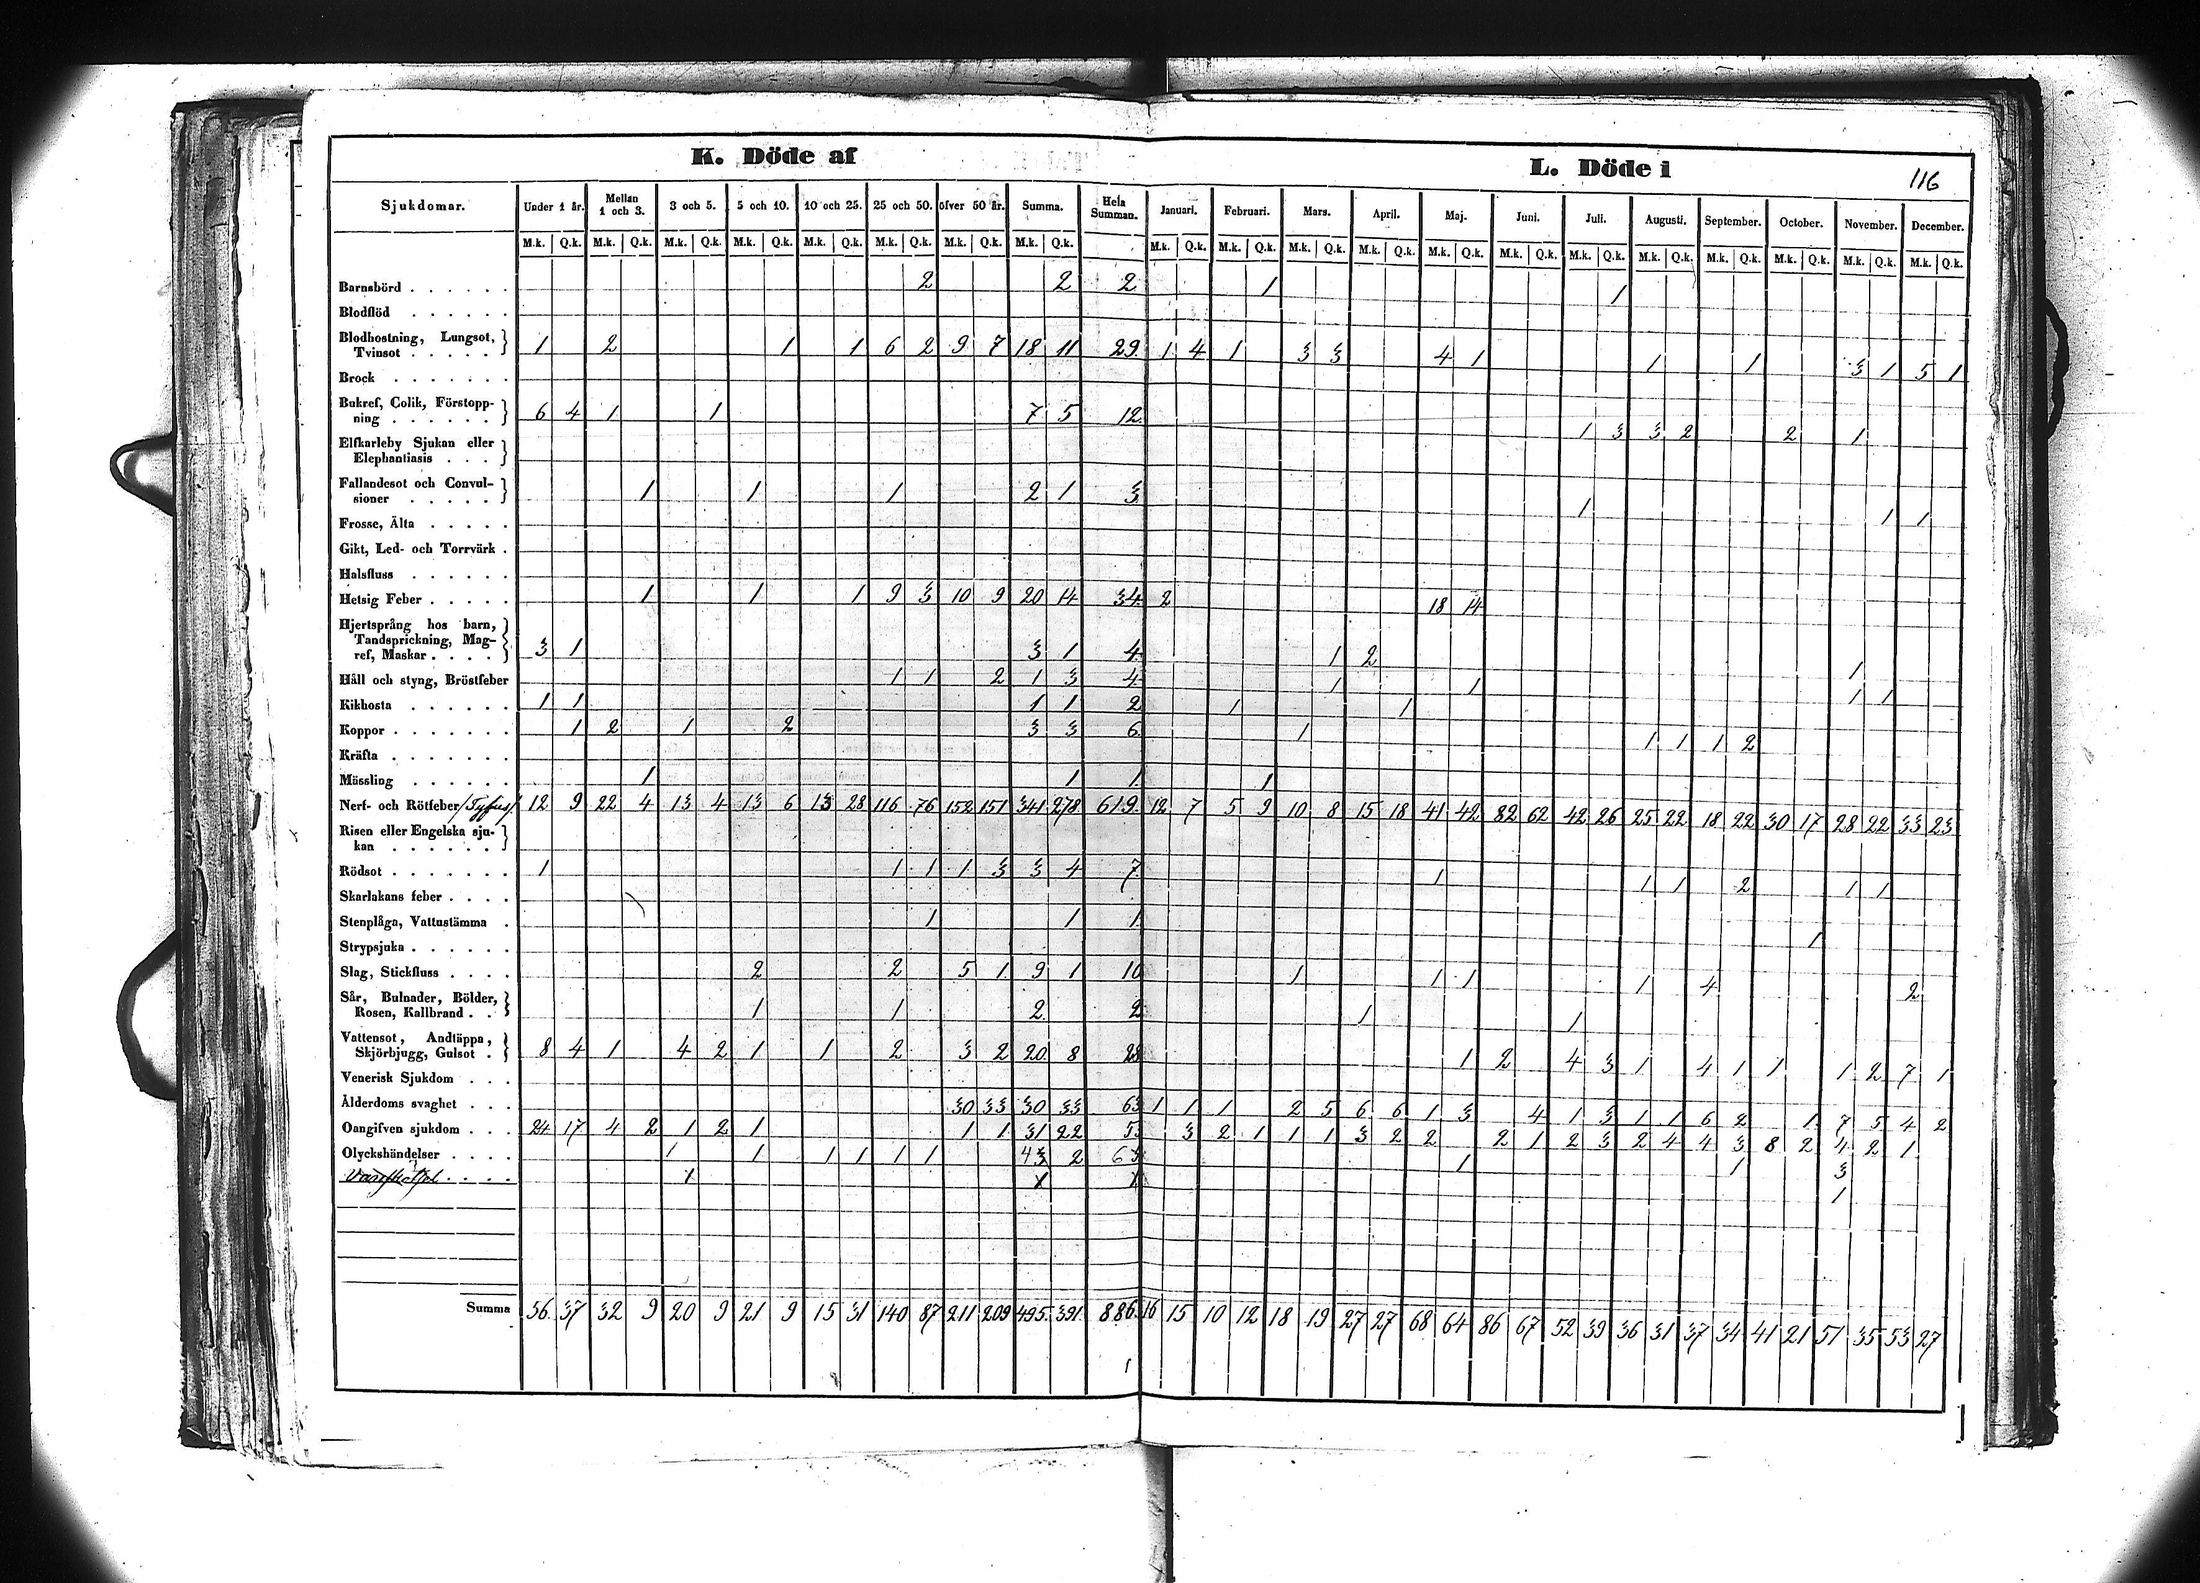 K. Döde af
L. Döde i
116
Sjukdomar. Under 1 år. Mellan 1 och 3. 3 och 5. 5 och 10. 10 och 25. 25 och 50. öfver 50 år. Summa. Hela Summan. Januari. Februari. Mars. April. Maj. Juni. Juli. Augusti. September. October. November. December.
M.k. Q.k. M.k. Q.k. M.k. Q.k. M.k. Q.k. M.k. Q.k. M.k. Q.k. M.k. Q.k. M.k. Q.k. M.k. Q.k. M.k. Q.k. M.k. Q.k. M.k. Q.k. M.k. Q.k. M.k. Q.k. M.k. Q.k. M.k. Q.k. M.k. Q.k. M.k. Q.k. M.k. Q.k. M.k. Q.k.
Barnsbörd . . . . . . 2 2 2 1 1
Blodflöd . . . . . .
Blodhostning, Lungsot,
Tvinsot . . . . . 1 2 1 1 6 2 9 7 18 11 29 1 4 1 3 3 4 1 1 1 3 1 5 1
Brock . . . . . . .
Bukref, Colik, Förstopp-
ning . . . . . . 6 4 1 1 7 5 12 1 3 3 2 2 1
Elfkarleby Sjukan eller
Elephantiasis . . .
Fallandesot och Convul-
sioner . . . . . 1 1 1 2 1 3 1 1 1
Frosse, Älta . . . . .
Gikt, Led- och Torrvärk .
Halsfluss . . . . . .
Hetsig Feber . . . . . 1 1 1 9 3 10 9 20 14 34 2 18 14
Hjertsprång hos barn,
Tandsprickning, Mag-
ref, Maskar . . . . 3 1 3 1 4 1 2 1
Håll och styng, Bröstfeber 1 1 2 1 3 4 1 1 1 1
Kikhosta . . . . . . 1 1 1 1 2 1 1
Koppor . . . . . . . 1 2 1 2 3 3 6 1 1 1 1 2
Kräfta . . . . . . .
Mässling . . . . . . 1 1 1 1
Nerf- och Rötfeber /Tyfus/ 12 9 22 4 13 4 13 6 13 28 116 76 152 151 341 278 619 12 7 5 9 10 8 15 18 41 42 82 62 42 26 25 22 18 22 30 17 28 22 33 23
Risen eller Engelska sju-
kan . . . . . .
Rödsot . . . . . . . 1 1 1 1 3 3 4 7 1 1 1 2 1 1
Skarlakans feber . . . .
Stenplåga, Vattustämma . 1 1 1 1
Strypsjuka . . . . . .
Slag, Stickfluss . . . . 2 2 5 1 9 1 10 1 1 1 1 4 2
Sår, Bulnader, Bölder,
Rosen, Kallbrand . . 1 1 2 2 1 1
Vattensot, Andtäppa,
Skjörbjugg, Gulsot . 8 4 1 4 2 1 1 2 3 2 20 8 28 1 2 4 3 1 4 1 1 1 2 7 1
Venerisk Sjukdom . . .
Ålderdoms svaghet . . . 30 33 30 33 63 1 1 1 2 5 6 6 1 3 4 1 3 1 1 6 2 1 7 5 4 2
Oangifven sjukdom . . . 24 17 4 2 1 2 1 1 1 31 22 53 3 2 1 1 1 3 2 2 2 1 2 3 2 4 4 3 8 2 4 2 1
Olyckshändelser . . . . 1 1 1 1 1 1 4 2 6 1 1 3
1 1 1 1
Summa 56 37 32 9 20 9 21 9 15 31 140 87 211 209 495 391 886 16 15 10 12 18 19 27 27 68 64 86 67 52 39 36 31 37 34 41 21 51 35 53 27